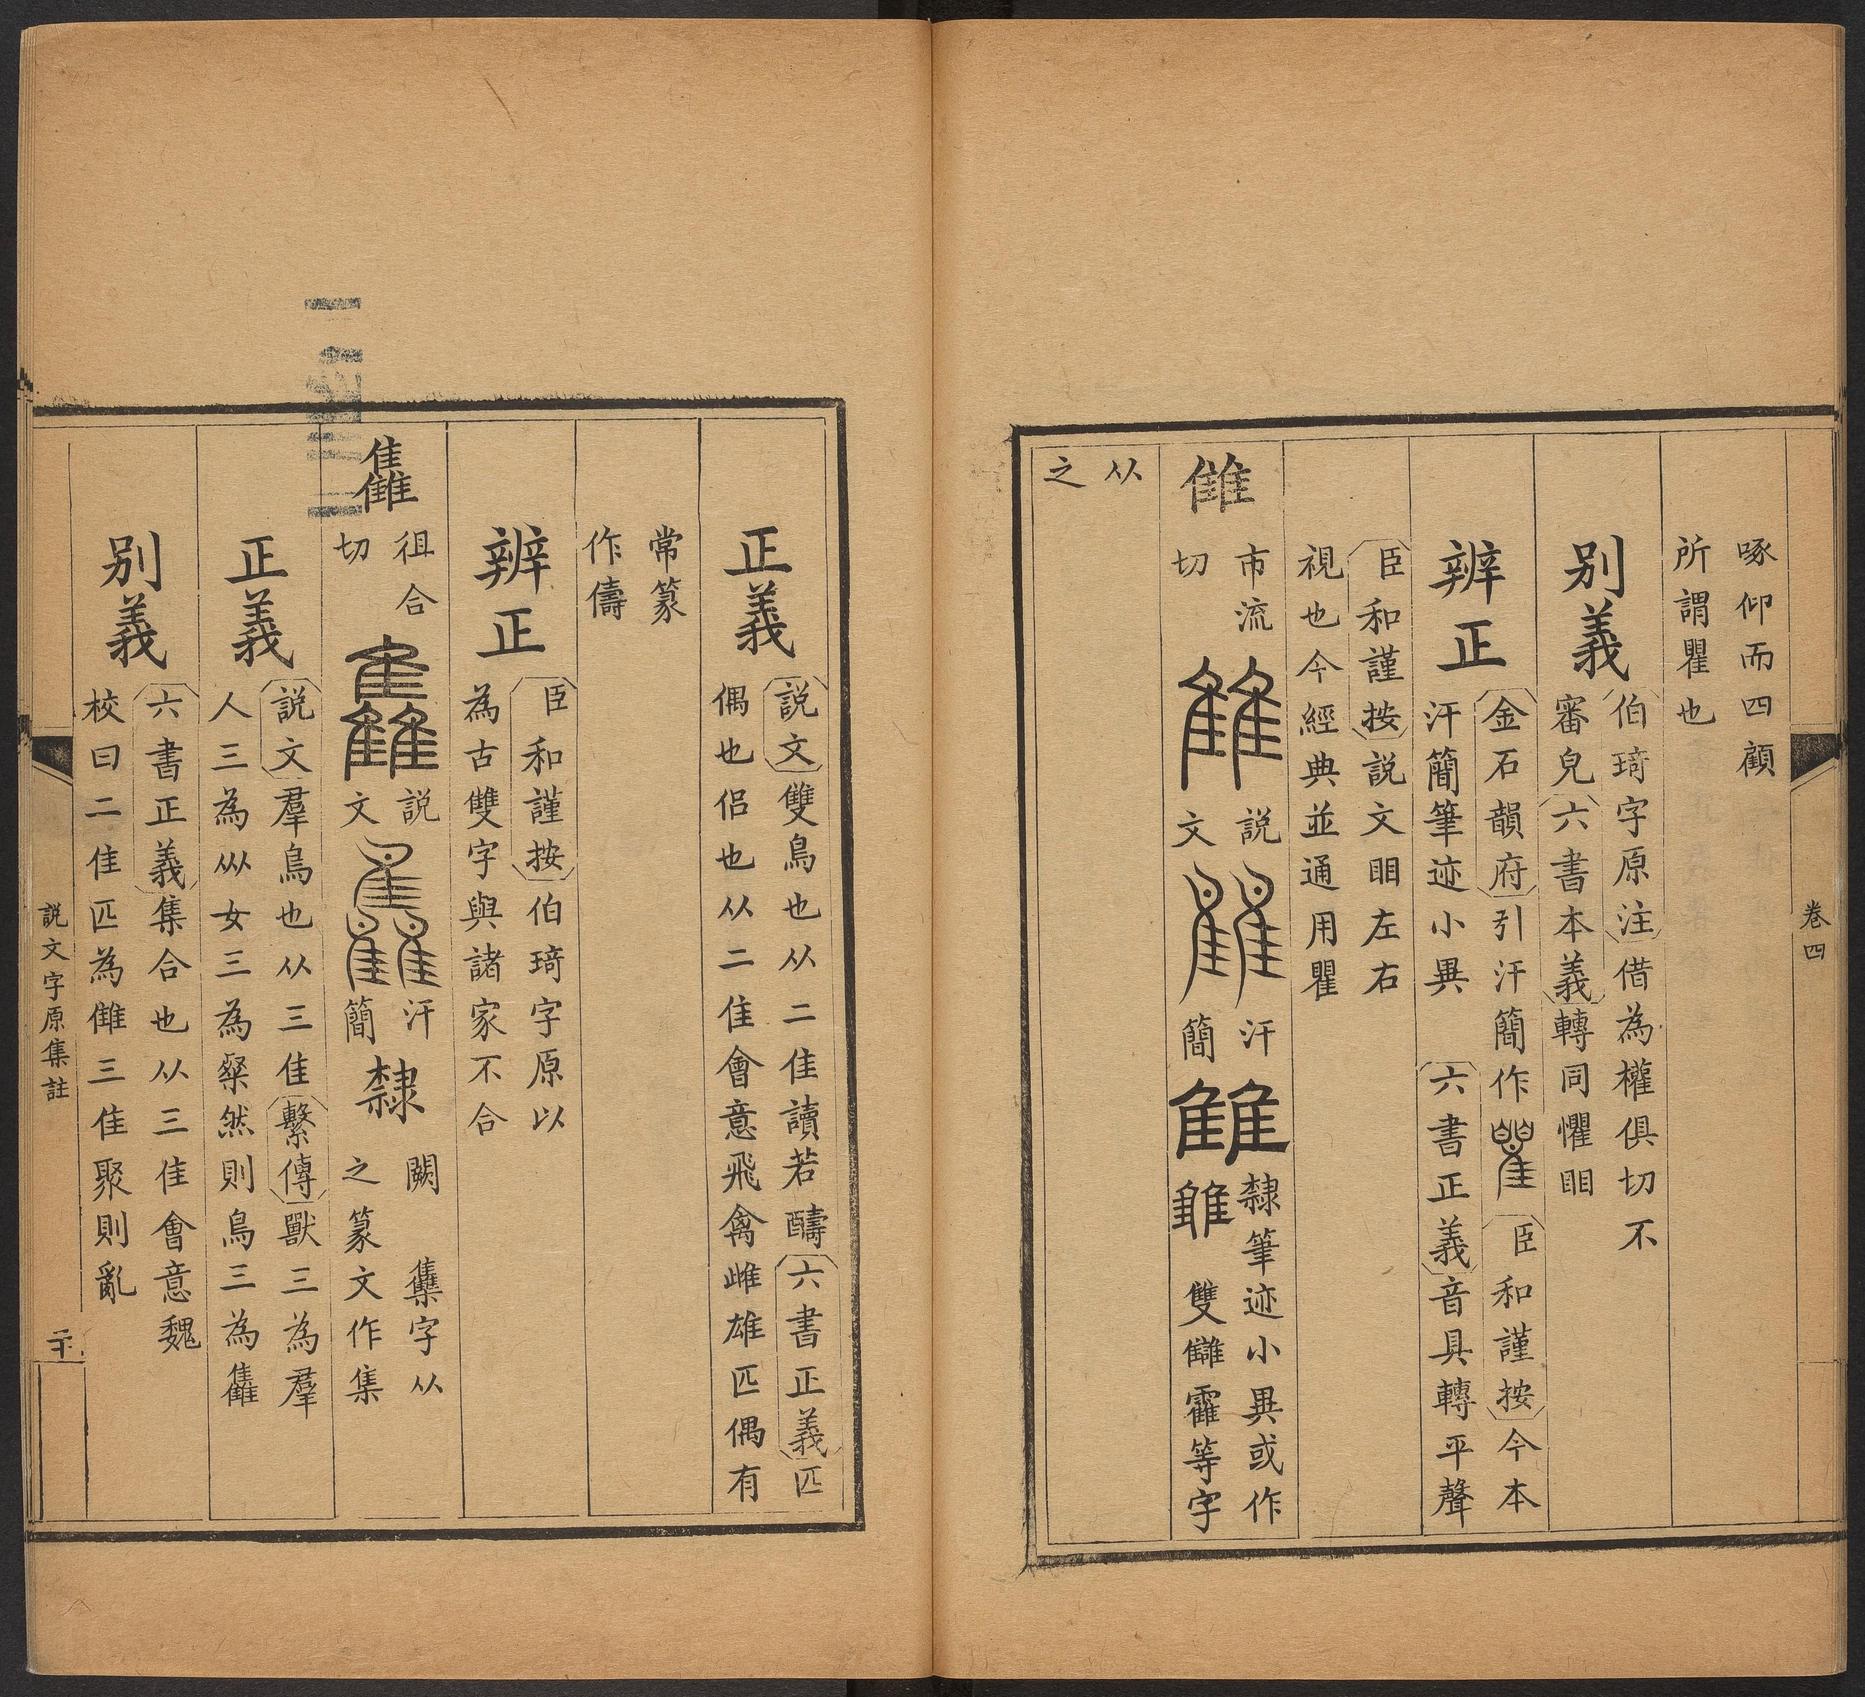 卷四
啄仰而四顧
所謂瞿也
别義
伯琦字原注借為權俱切不
審皃六書本義轉同懼䀠
辨正
金石韻府引汗簡作瞿臣和謹按今本
汗簡筆迹小異 六書正義音具轉平聲
臣和謹按説文䀠左右
視也今經典並通用瞿
雔
市流
切
雔
説
文
雔
汗
簡
雔
隸筆迹小異或作
雙讎靃等字
从
之
正義
説文雙鳥也从二隹讀若醻六書正義匹
偶也侣也从二隹會意飛禽雌雄匹偶有
常篆
作儔
辨正
臣和謹按伯琦字原以
為古雙字與諸家不合
雥
徂合
切
雥
説
文
雥
汗
簡
隸
闕 雧字从
之篆文作集
正義
説文羣鳥也从三隹繫傳獸三為羣
人三為㐺女三為粲然則鳥三為雥
别義
六書正義集合也从三隹會意魏
校曰二隹匹為雔三隹聚則亂
説文字原集註
二十